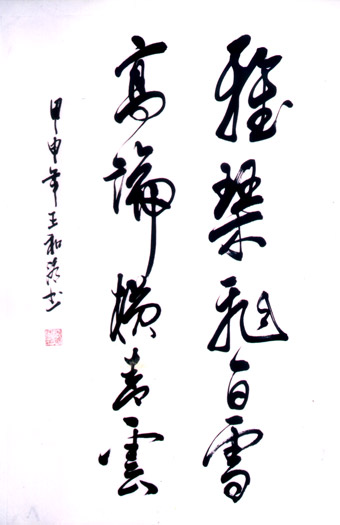 雅琴飛白雪
高論橫青雲
甲申年王和平书